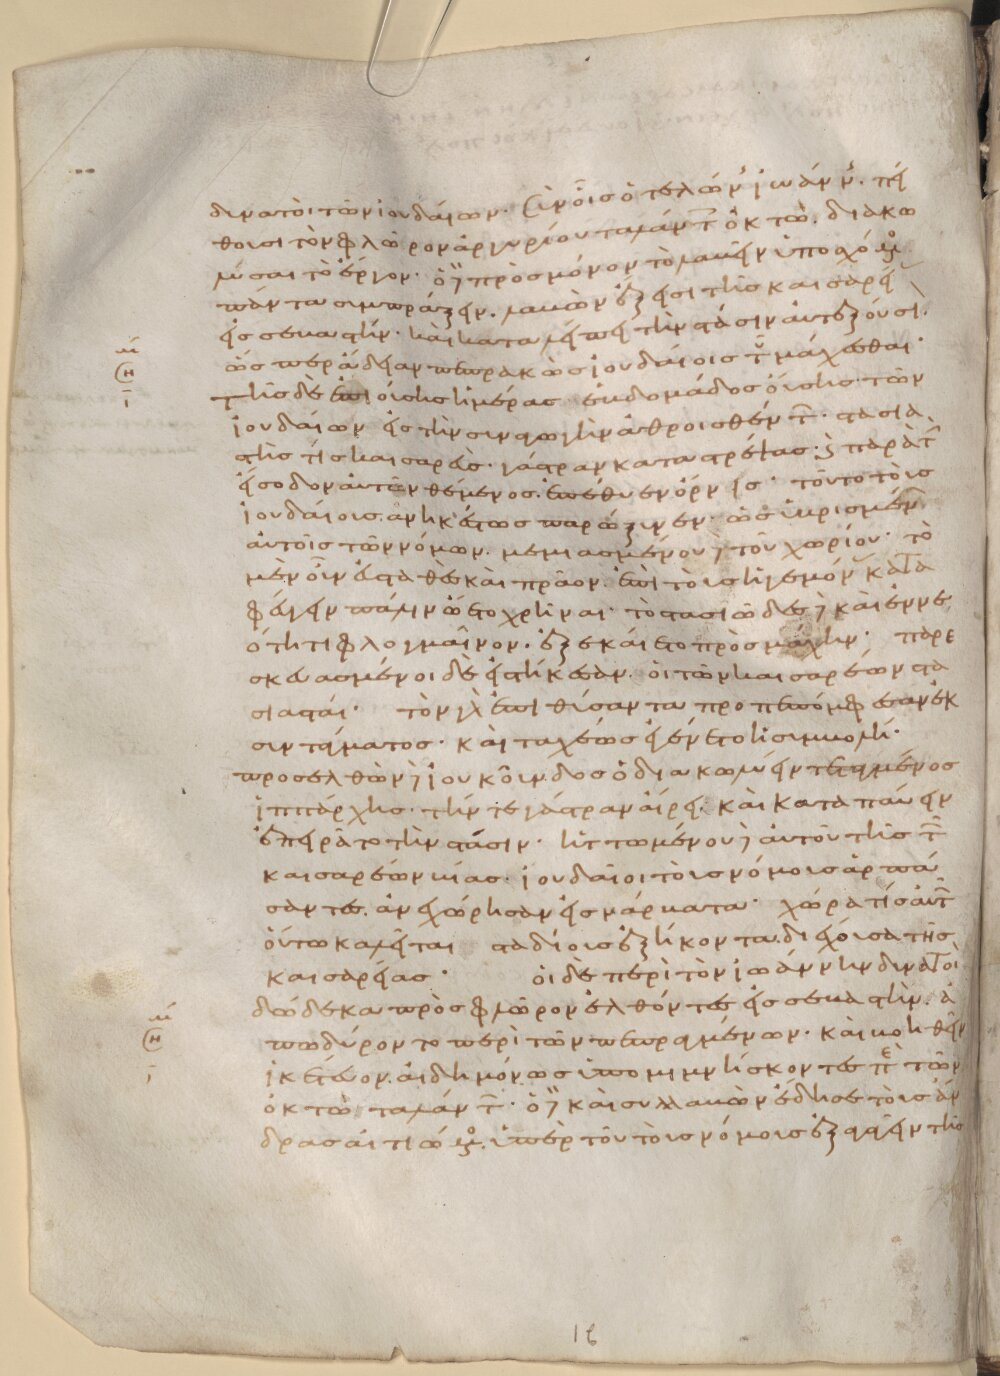 δυνατοὶ τῶν ἰουδαίων. σὺν οἷς ὁ τελώνης ἰωάννης. πεί
θουσι τὸν φλῶρον ἀργυρίου ταλάντοις ὀκτὼ. διακω
λῦσαι τὸ ἔργον. ὁ δὲ πρὸς μόνον τὸ λαβεῖν ὑποσχόμενος
πάντα συμπράξειν. λαβὼν ἔξεισι τῆς καισαρείας
εἰς σεβαστήν. καὶ καταλείπει τὴν στάσιν αὐτεξούσιον.
ὥσπερ ἄδειαν πεπρακὼς ἰουδαίοις τοῦ μάχεσθαι.
τῆς δὲ ἐπιούσης ἡμέρας ἑβδομάδος οὔσης. τῶν
ἰουδαίων εἰς τὴν συναγωγὴν ἀθροισθέντων. στασια
στής τις καισαρεὺς. γάστραν καταστρέψας. καὶ παρὰ τὴν
εἴσοδον αὐτῶν θέμενος. ἐπέθυεν ὄρνεις. τοῦτο τοὺς
ἰουδαίους. ἀνηκέστως παρώξυνεν. ὡς ὑβρισμένων
αὐτοῖς τῶν νόμων. μεμιασμένου δὲ τοῦ χωρίου. τὸ
μὲν οὖν εὐσταθὲς καὶ πρᾶον. ἐπὶ τοὺς ἡγεμόνας κατα
φεύγειν πάλιν ὤετο χρῆναι. τὸ στασιῶδες δὲ καὶ ἐν νε
ότητι φλεγμαῖνον. ἐξεκαίετο πρὸς μάχην. παρε
σκευασμένοι δὲ εἱστήκεσαν. οἱ τῶν καισαρέων στα
σιασταί. τὸν γὰρ ἐπιθύσαντα προπεπόμφεσαν ἐκ
συντάγματος. καὶ ταχέως ἐγένετο ἡ συμβολή.
προσελθὼν δὲ ἰουκοῦνδος ὁ διακωλύειν τεταγμένος
ἱππάρχης. τήν τε γάστραν αἴρει. καὶ καταπαύειν
ἐπειρᾶτο τὴν στάσιν. ἡττωμένου δὲ αὐτοῦ τῆς τῶν
καισαρέων βίας. ἰουδαῖοι τοὺς νόμους ἁρπά
σαντες. ἀνεχώρησαν εἰς νάρβατα. χώρα τίς αὐτῶν
οὕτω καλεῖται σταδίους ἑξήκοντα. διέχουσα τῆς
καισαρείας. οἱ δὲ περὶ τὸν ἰωάννην δυνατοὶ
δώδεκα πρὸς φλῶρον ἐλθόντες εἰς σεβαστὴν. ἀ
πωδύροντο περὶ τῶν πεπραγμένων. καὶ βοηθεῖν
ἱκέτευον. αἰδημόνως ὑπομιμνήσκοντες περὶ τῶν
ὀκτὼ ταλάντων. ὁ δὲ καὶ συλλαβὼν ἔδησε τοὺς ἄν
δρας αἰτιώμενος. ὑπὲρ τοῦ τοὺς νόμους ἐξαγαγεῖν τῆς